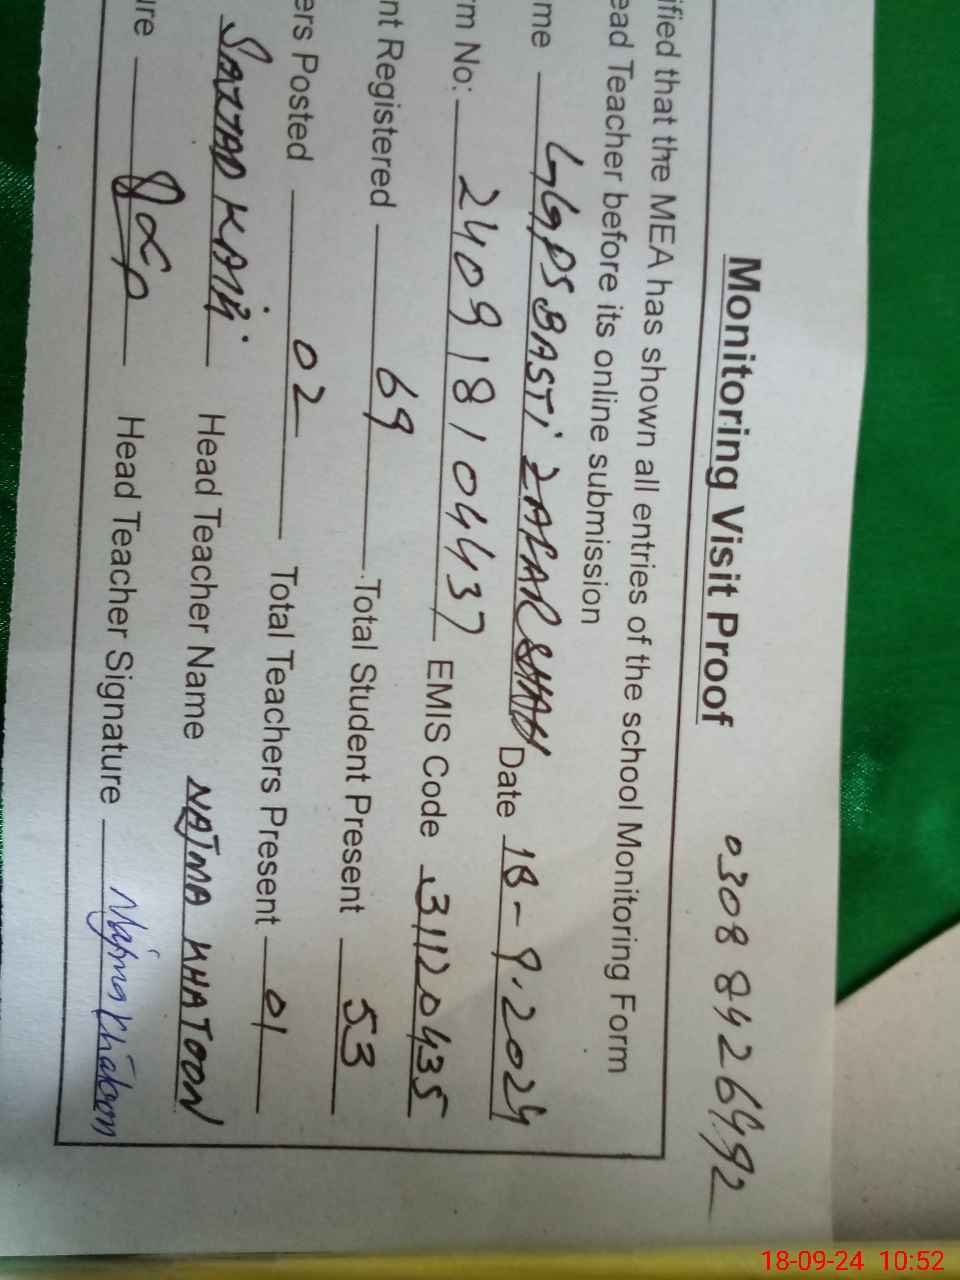 Monitoring Visit Proof 0308 8426492
ified that the MEA has shown all entries of the school Monitoring Form
ead Teacher before its online submission
me GGPS BASTI ZAFAR SHAH Date 18-9-2024
rm No: 240918104437 EMIS Code 31120435
nt Registered 69 Total Student Present 53
ers Posted 02 Total Teachers Present 01
SAJJAD Head Teacher Name NAJMA KHATOON
ure Head Teacher Signature Najma Khatoon
18-09-24 10:52